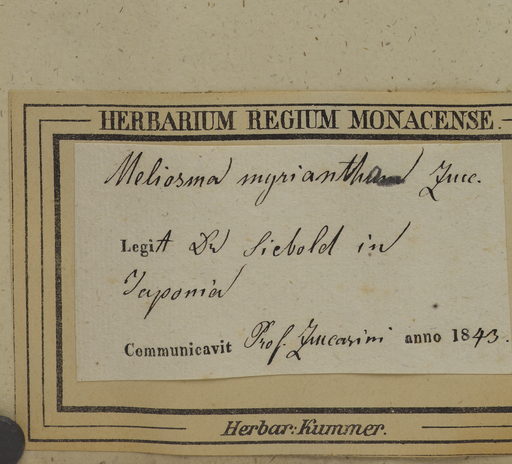 HERBARIUM REGIUM MONACENSE.
Meliosma myriantha Zucc.
Legit Dr Siebold in
Japonia
Communicavit Prof. Zuccarini anno 1843.
Herbar: Kummer.